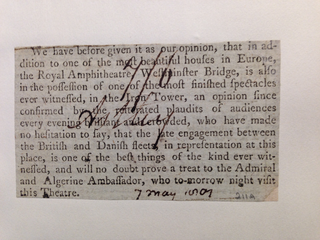 We have before given it as our opinion, that in ad-
dition to one of the most beautiful houses in Europe,
the Royal Amphitheatre, Westminster Bridge, is also
in the possession of one of the most finished spectacles
ever witnessed, in the Iron Tower, an opinion since
confirmed by the reiterated plaudits of audiences
every evening brilliant and crowded, who have made
no hesitation to say, that the late engagement between
the British and Danish fleets, in representation at this
place, is one of the best things of the kind ever wit-
nessed, and will no doubt prove a treat to the Admiral
and Algerine Ambassador, who to-morrow night visit
this Theatre.
7 may 1801